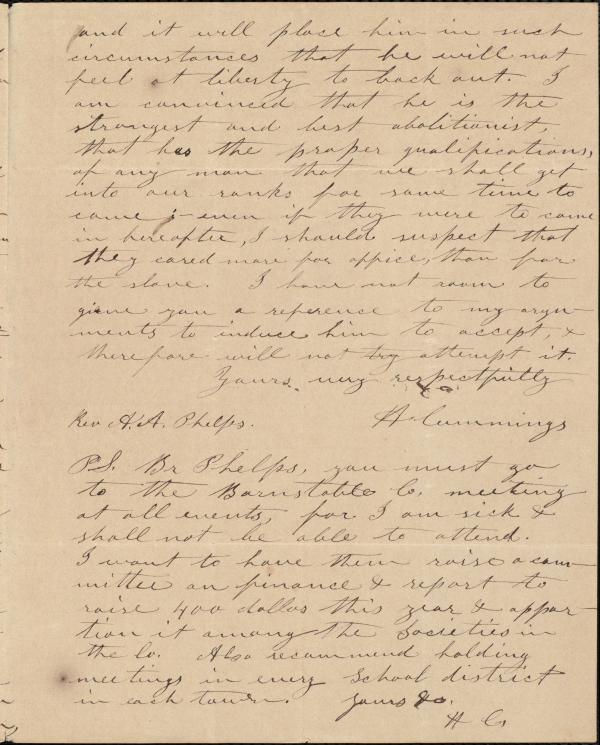 and it will place him in such
circumstances that he will not
feel at liberty to back out. I
am convinced that he is the
strongest and best abolitionist,
that has the proper qualifications,
of any man that we shall get
into our ranks for some time to
come ;- even if they were to come
in hereafter, I should suspect that
they cared more for office, than for
the slave. I have not room to
give you a reference to my argu-
ments to induce him to accept, &
therefore will not try attempt it.
Yours very respectfully
Rev A. A. Phelps. H Cummings
P.S. Br Phelps, you must go
to the Barnstable Co. meeting
at all events, for I am sick &
shall not be able to attend.
I want to have them raise a com-
mittee on finance & report to
raise 400 dollas this year & appor-
tion it among the Societies in
the Co. Also recommend holding
meetings in every School district
in each town. Yours &c.
H C